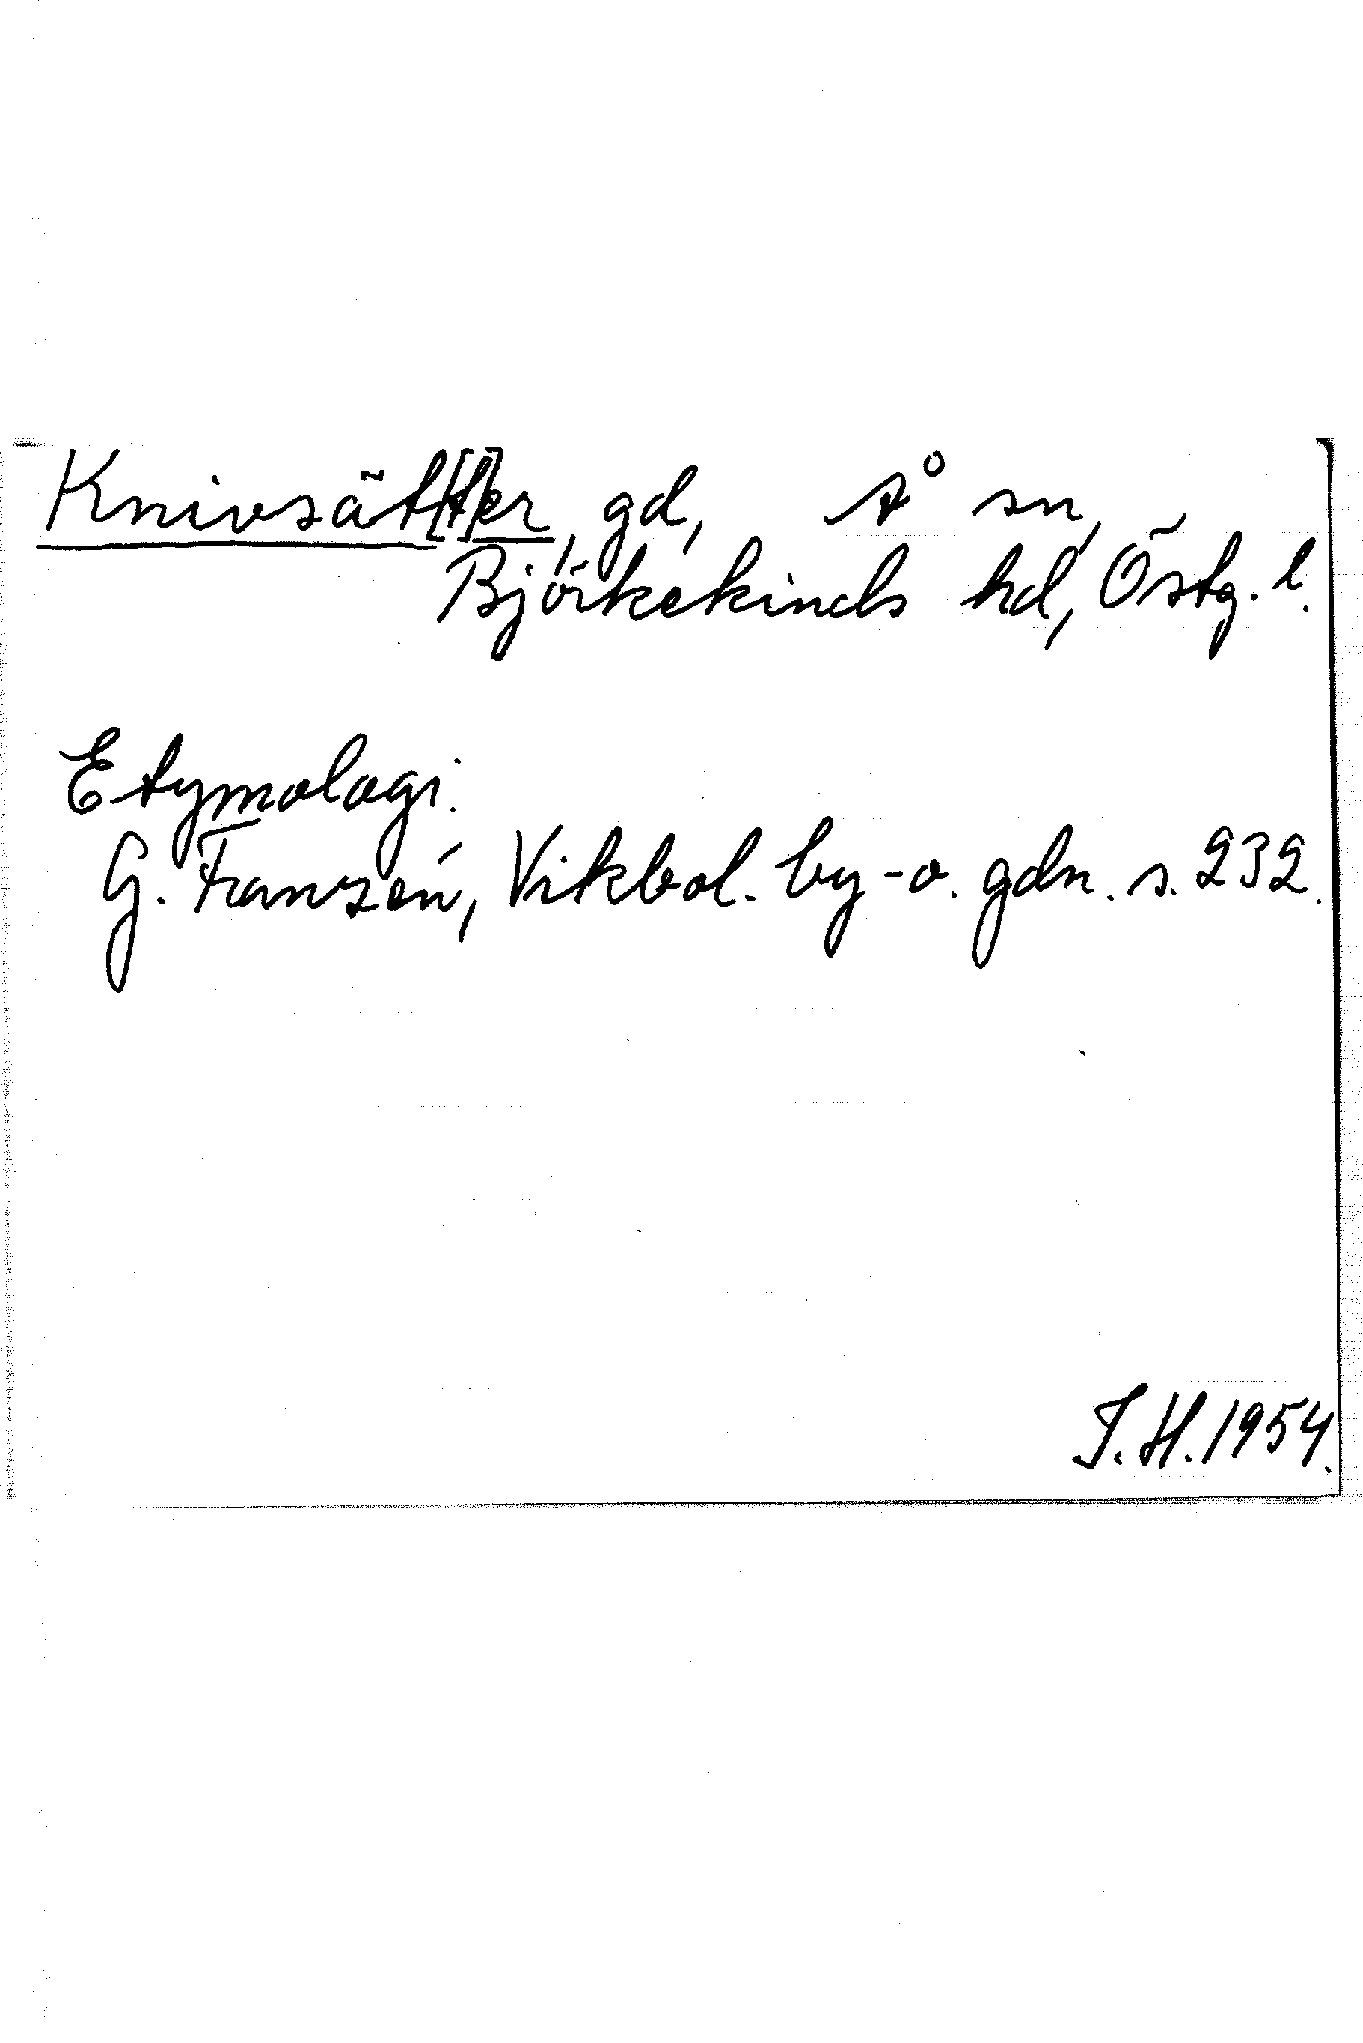 Knivsät[t]er, gd, Å sn,
Björkekinds hd, Östg. l.
Etymologi.
G. Franzén, Vikbol. by- o. gdn. s. 232.
I. H. 1954.